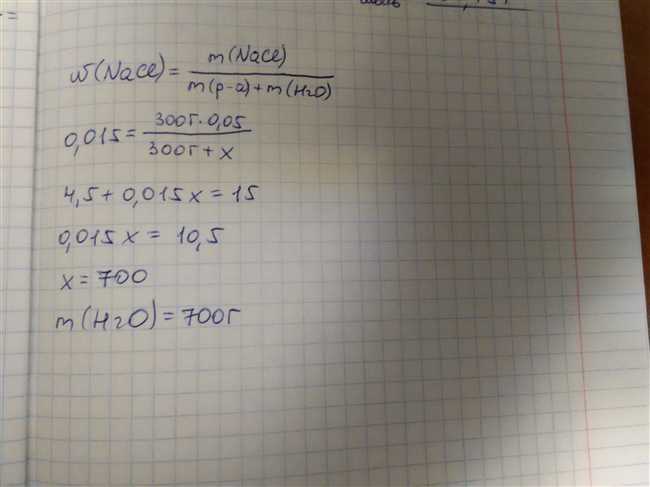 ω(NaCl) = m(NaCl) / m(р-а) + m(H2O)
0,015 = 300г · 0,05 / 300г + x
4,5 + 0,015x = 15
0,015x = 10,5
x = 700
m(H2O) = 700г